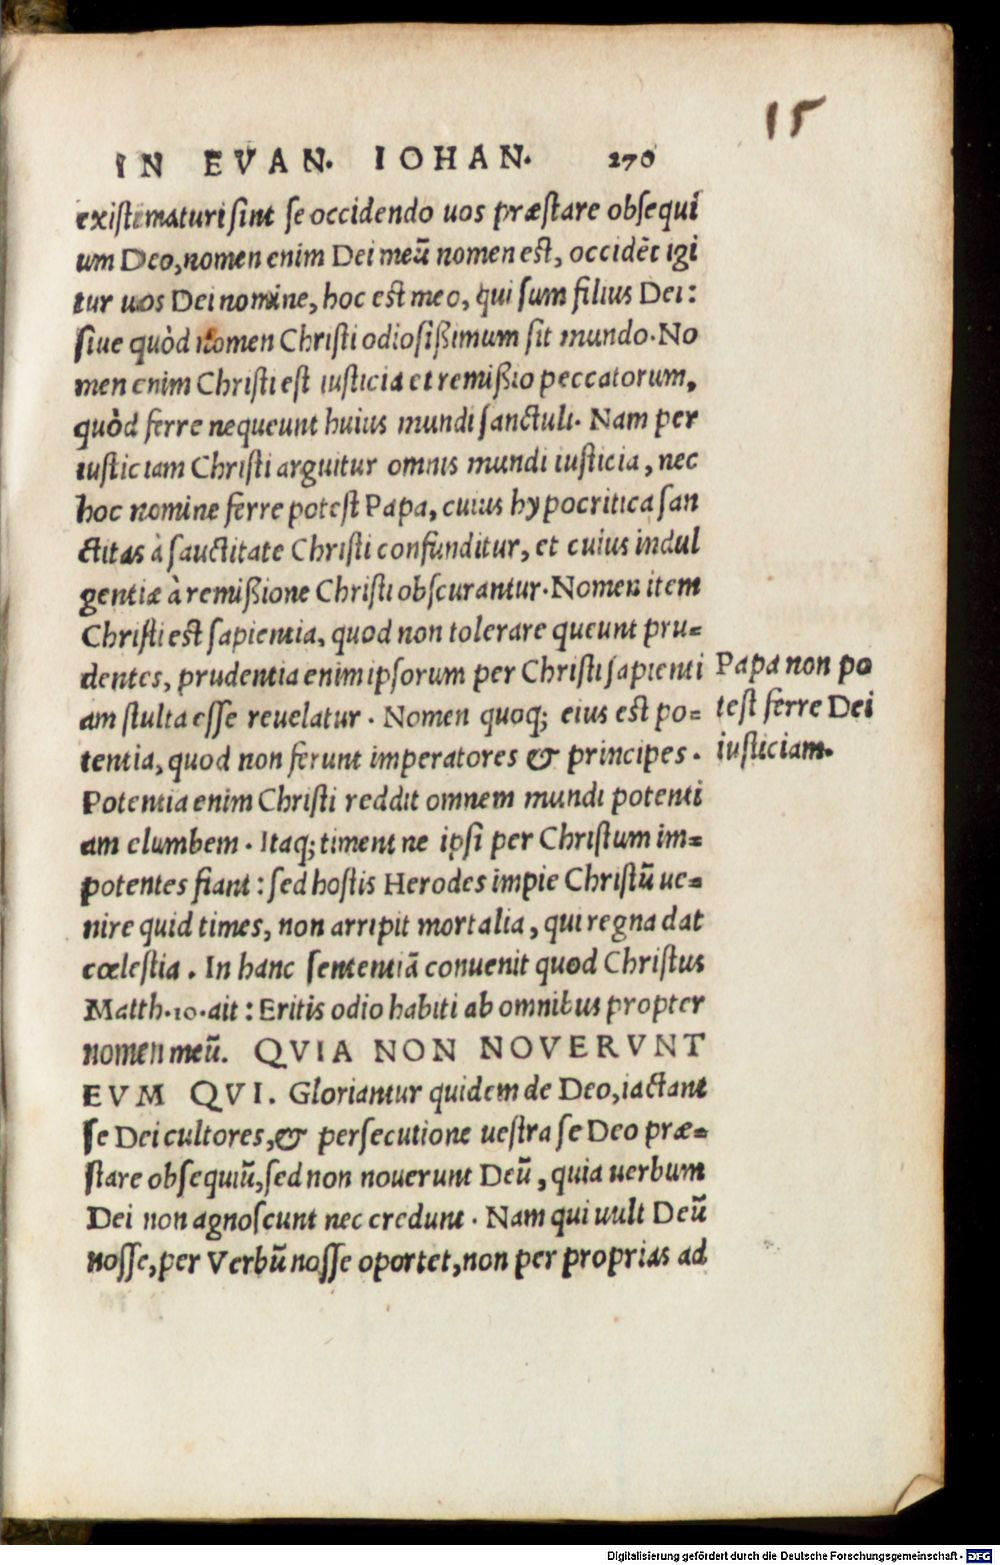 15
IN EVAN. IOHAN. 270
existimaturi sint se occidendo uos præstare obsequi
um Deo, nomen enim Dei meū nomen est, occidēt igi
tur uos Dei nomine, hoc est meo, qui sum filius Dei:
siue quòd nomen Christi odiosißimum sit mundo. No
men enim Christi est iusticia et remißio peccatorum,
quòd ferre nequeunt huius mundi sanctuli. Nam per
iusticiam Christi arguitur omnis mundi iusticia, nec
hoc nomine ferre potest Papa, cuius hypocritica san
ctitas à sauctitate Christi confunditur, et cuius indul
gentiæ à remißione Christi obscurantur. Nomen item
Christi est sapientia, quod non tolerare queunt pru=
dentes, prudentia enim ipsorum per Christi sapienti
am stulta esse reuelatur. Nomen quoq; eius est po=
tentia, quod non ferunt imperatores & principes.
Potentia enim Christi reddit omnem mundi potenti
am elumbem. Itaq; timent ne ipsi per Christum im=
potentes fiant: sed hostis Herodes impie Christū ue=
nire quid times, non arripit mortalia, qui regna dat
cœlestia. In hanc sententiā conuenit quod Christus
Matth. 10. ait: Eritis odio habiti ab omnibus propter
nomen meū. QVIA NON NOVERVNT
EVM QVI. Gloriantur quidem de Deo, iactant
se Dei cultores, & persecutione uestra se Deo præ=
stare obsequiū, sed non nouerunt Deū, quia uerbum
Dei non agnoscunt nec credunt. Nam qui uult Deū
nosse, per Verbū nosse oportet, non per proprias ad
Papa non po
test ferre Dei
iusticiam.
Digitalisierung gefördert durch die Deutsche Forschungsgemeinschaft - DFG